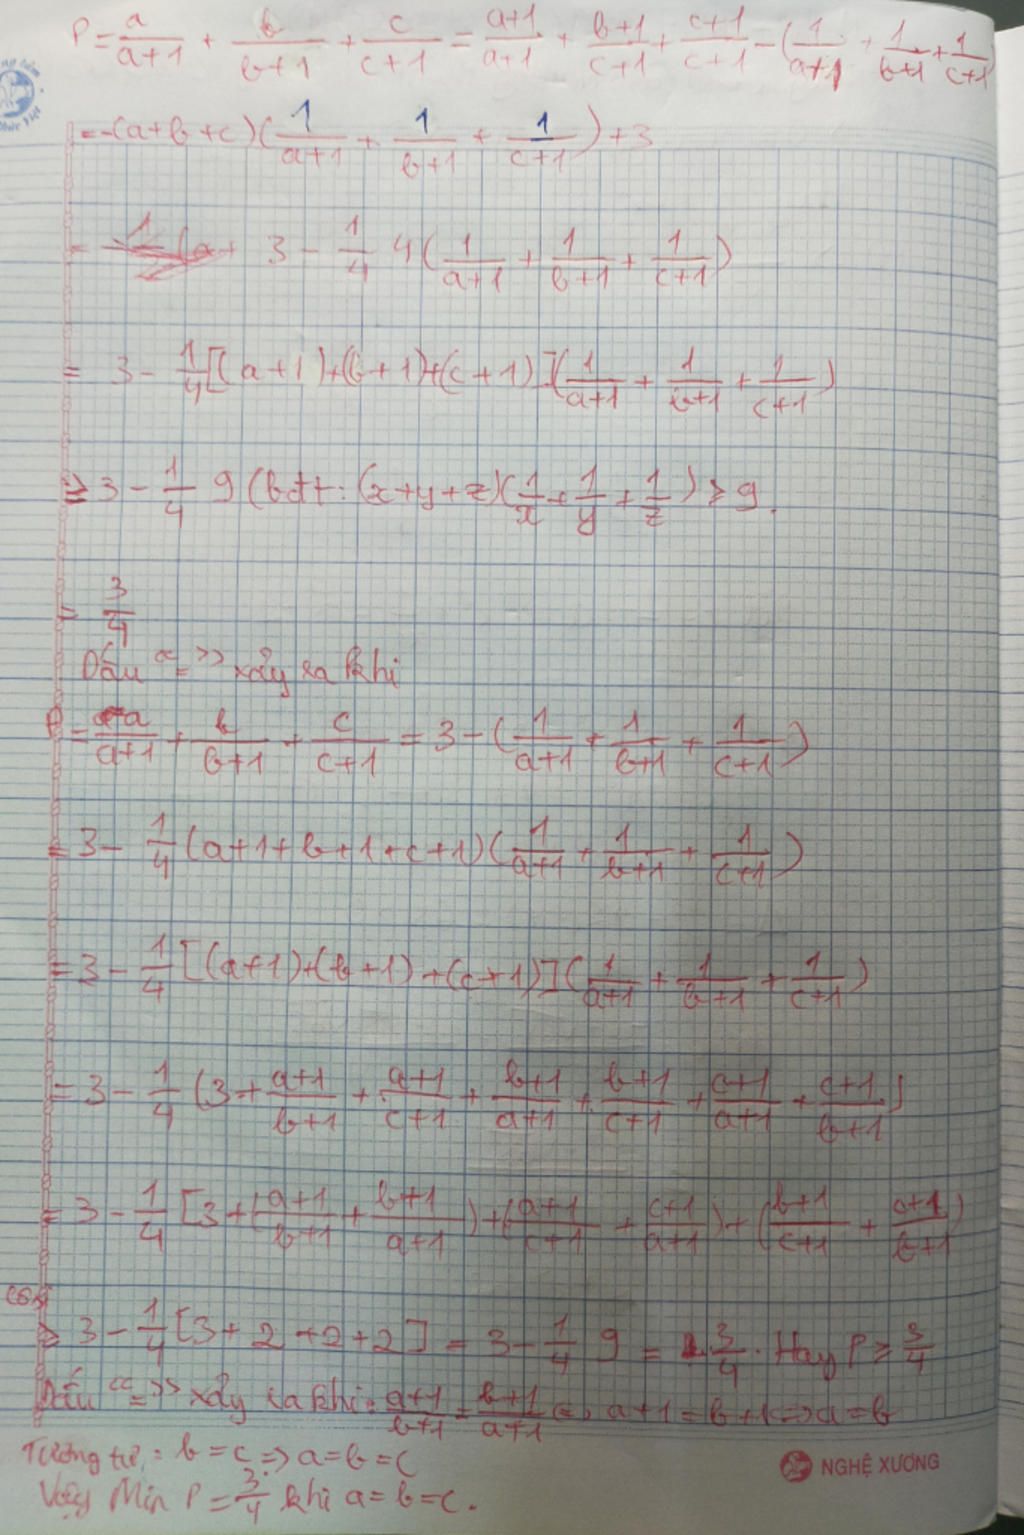 P = a/(a+1) + b/(b+1) + c/(c+1) = (a+1)/(a+1) + (b+1)/(c+1) + (c+1)/(c+1) - (1/(a+1) + 1/(b+1) + 1/(c+1))
= -(a+b+c)(1/(a+1) + 1/(b+1) + 1/(c+1)) + 3
= 3 - 1/4 4(1/(a+1) + 1/(b+1) + 1/(c+1))
= 3 - 1/4[(a+1)+(b+1)+(c+1)](1/(a+1) + 1/(b+1) + 1/(c+1))
≥ 3 - 1/4 9 (bđt: (x+y+z)(1/x + 1/y + 1/z) ≥ 9.
= 3/4
Dấu "=" xảy ra khi
P = a/(a+1) + b/(b+1) + c/(c+1) = 3 - (1/(a+1) + 1/(b+1) + 1/(c+1))
= 3 - 1/4(a+1+b+1+c+1)(1/(a+1) + 1/(b+1) + 1/(c+1))
= 3 - 1/4[(a+1)+(b+1)+(c+1)](1/(a+1) + 1/(b+1) + 1/(c+1))
= 3 - 1/4(3 + (a+1)/(b+1) + (a+1)/(c+1) + (b+1)/(a+1) + (b+1)/(c+1) + (c+1)/(a+1) + (c+1)/(b+1)]
= 3 - 1/4[3 + ((a+1)/(b+1) + (b+1)/(a+1)) + ((a+1)/(c+1) + (c+1)/(a+1)) + ((b+1)/(c+1) + (c+1)/(b+1))
≥ 3 - 1/4[3+2+2+2] = 3 - 1/4 9 = 3/4. Hay P ≥ 3/4
Dấu "=" xảy ra khi: (a+1)/(b+1) = (b+1)/(a+1) => a+1 = b+1 => a = b
Tương tự: b = c => a = b = c
Vậy Min P = 3/4 khi a = b = c.
NGHỆ XƯƠNG